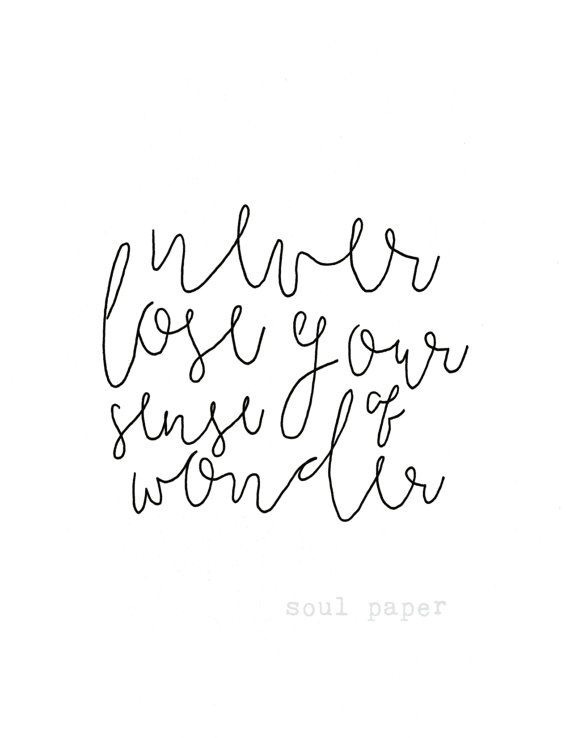 never
lose your
sense of
wonder
soul paper